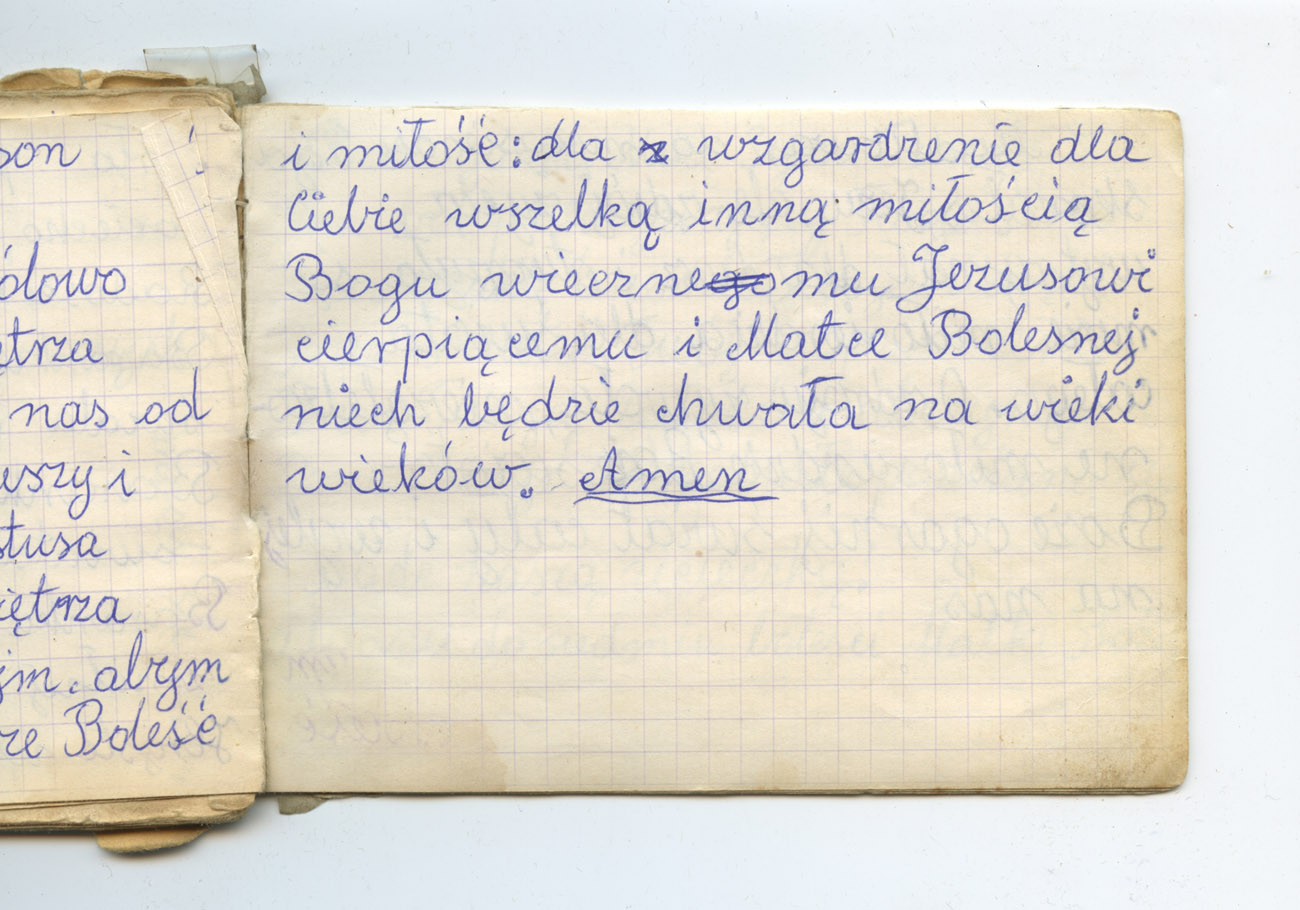 son
ólowo
ętrza
nas od
uszy i
stusa
iętrza
ym. abym
re Boleść
i miłość: dla wzgardzenie dla
Ciebie wszelką inną miłością
Bogu wiecznemu Jezusowi
cierpiącemu i Matce Bolesnej
niech będzie chwała na wieki
wieków. Amen